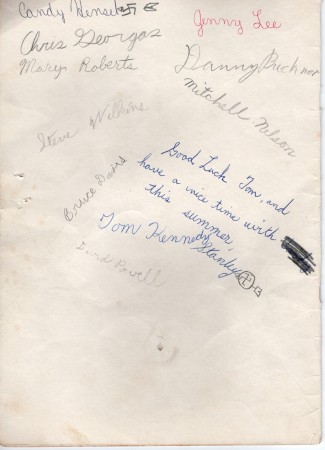 Candy
Jenny Lee
Chris Georgas
Mary Roberts
Danny Buchner
Mitchell Nelson
Steve Wilkins
Good Luck Tom, and
have a nice time with
this summer,
Bruce Davis
Tom Kennedy
Stanley
David Powell